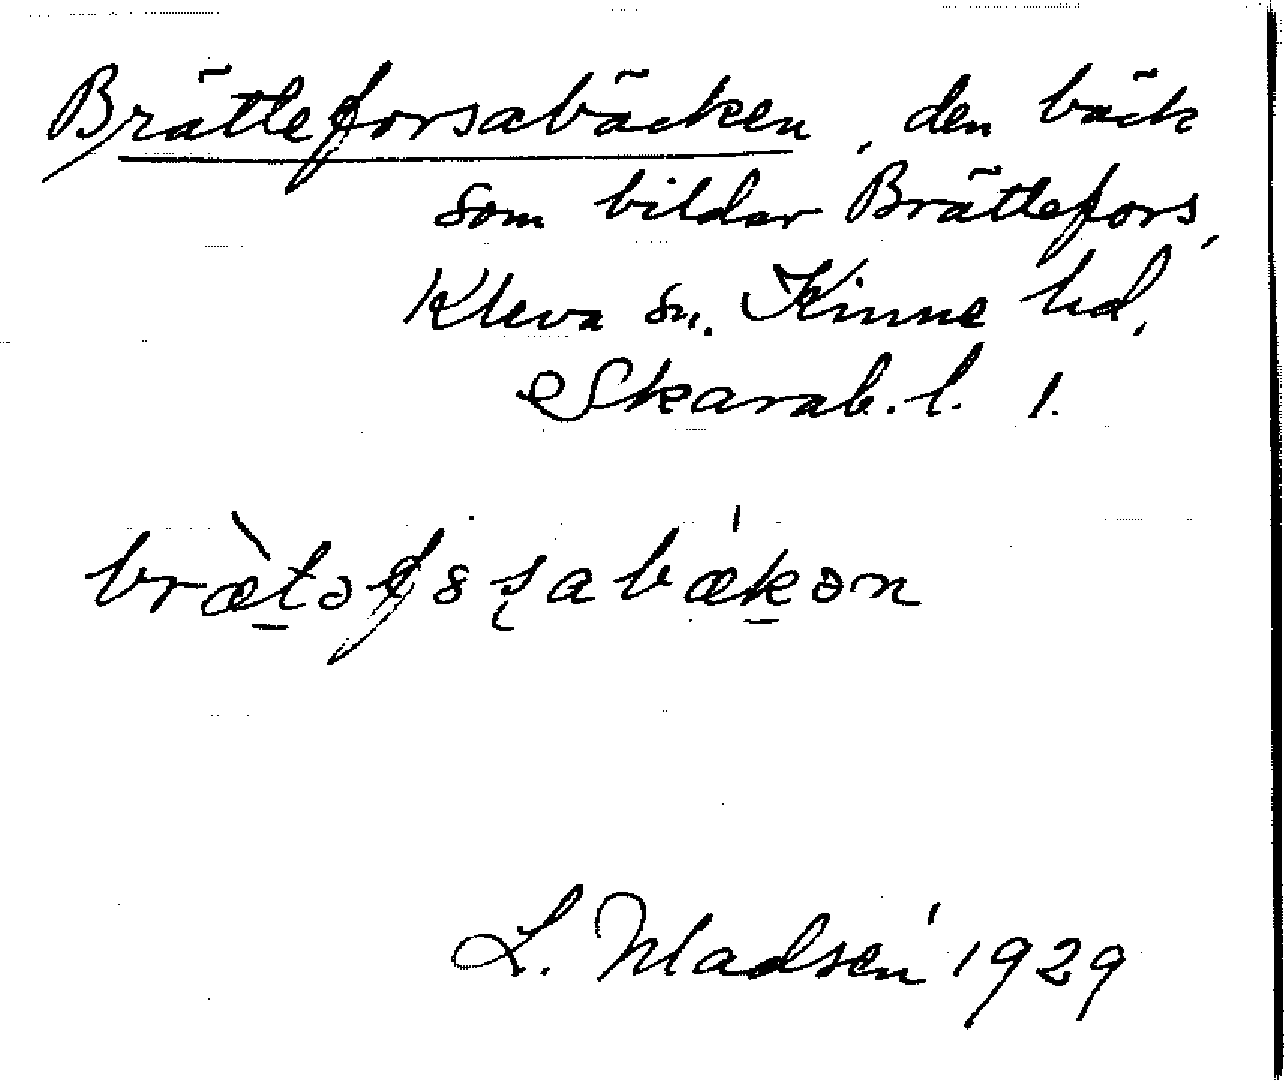 Brätteforsabäcken, den bäck
som bildar Brättefors,
Kleva sn. Kinne hd,
Skarab. l. 1.
brætəfsabækən
L. Madsén 1929